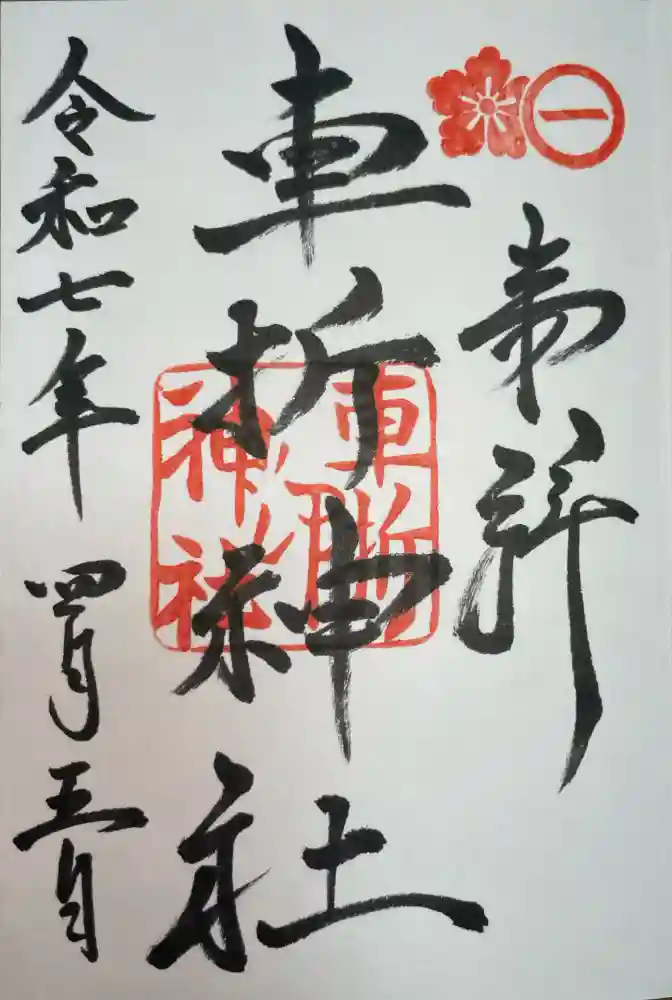 一
奉拝
車折神社
車折
神社
令和七年四月五日